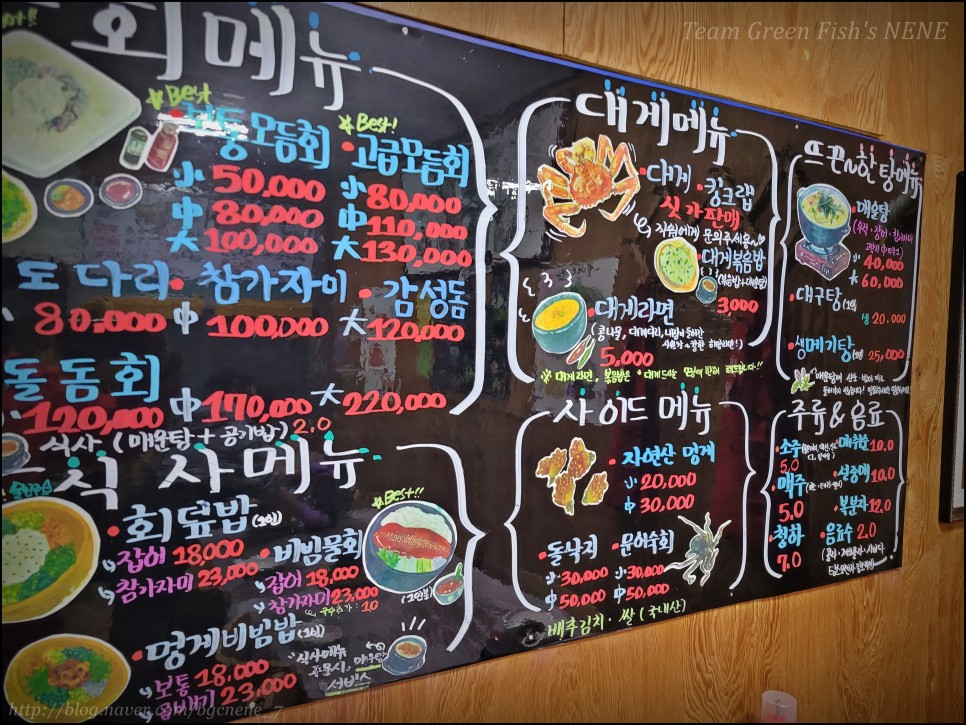 Team Green Fish's NENE
회메뉴
Best
모듬회
小 50,000
中 80,000
大 100,000
Best!
고급모듬회
小 80,000
中 110,000
大 130,000
도다리·참가자미·감성돔
80,000 中 100,000 大 120,000
돌돔회
120,000 中 170,000 大 220,000
식사 (매운탕+공기밥) 2.0
식사메뉴
회덮밥
잡어 18,000
참가자미 23,000
Best!!
비빔물회
잡어 18,000
참가자미 23,000
국수추가 : 1.0
멍게비빔밥
보통 18,000
곱빼기 23,000
식사메뉴
주문시,
서비스
대게메뉴
대게·킹크랩
싯가판매
직원에게 문의주세용~
대게볶음밥
(볶음밥+매운탕)
3,000
대게라면
5,000
사이드 메뉴
자연산 멍게
小 20,000
中 30,000
돌낙지
小 30,000
中 50,000
문어숙회
小 30,000
中 50,000
배추김치·쌀 (국내산)
뜨끈~한 탕메뉴
매운탕
小 40,000
大 60,000
대구탕
20,000
생메기탕
25,000
주류&음료
소주
5.0
맥주
5.0
청하
7.0
매취순 10.0
설중매 10.0
복분자 12.0
음료수 2.0
http://blog.naver.com/bgcnene_7